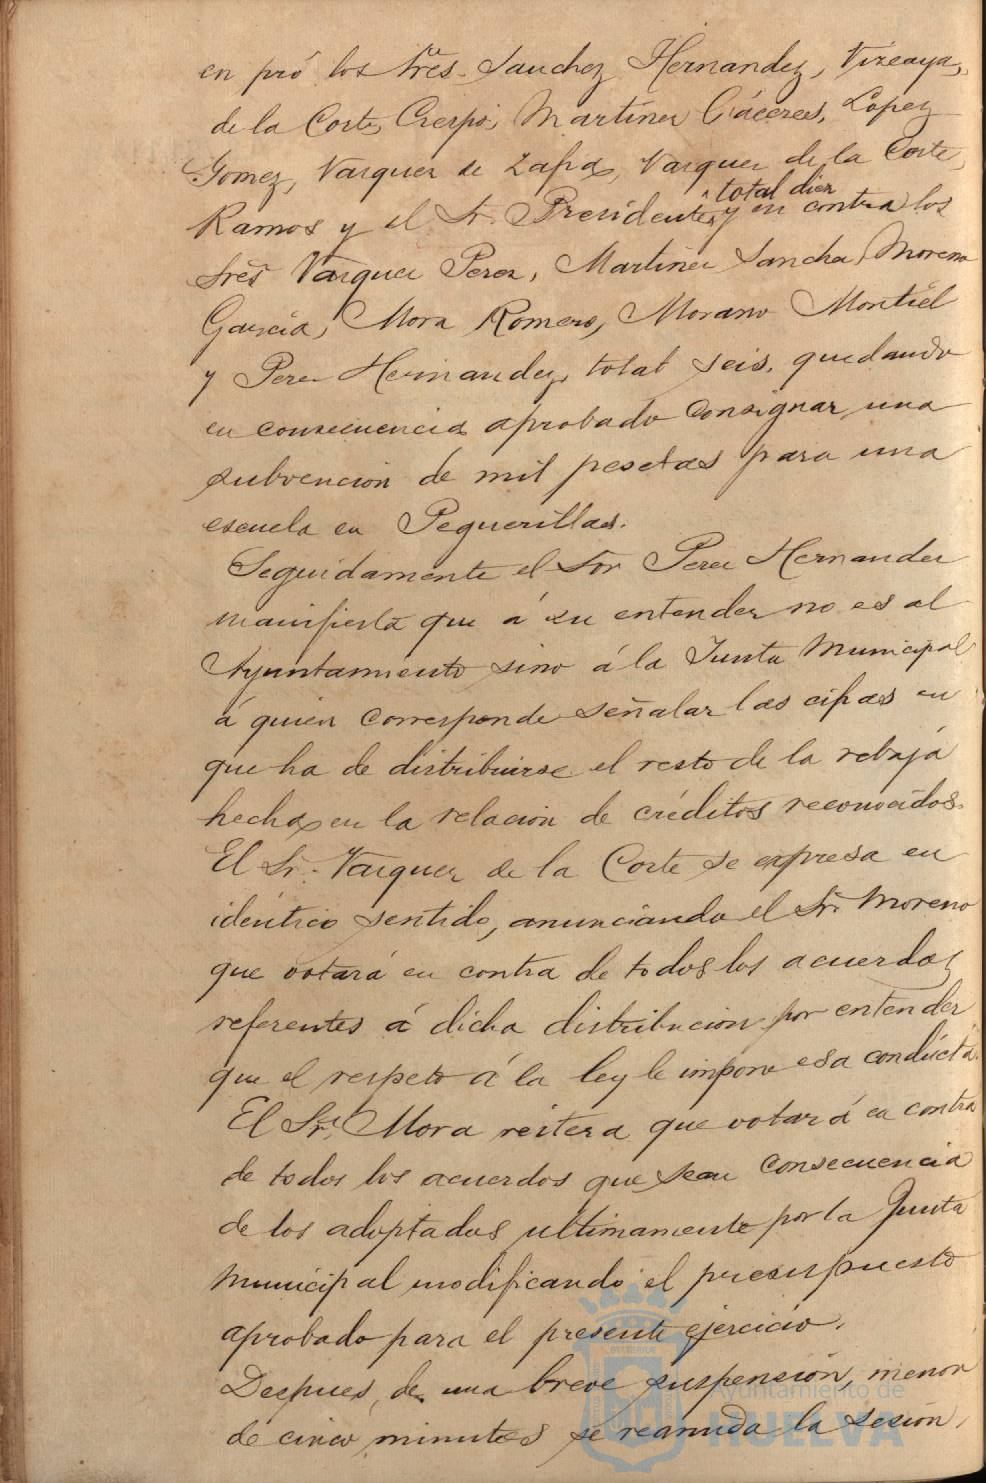 en pró los Sres. Sanchez Hernandez, Vizcaya,
de la Corte, Crespo, Martinez Cáceres, Lopez
Gomez, Vazquez de Zafra, Vazquez de la Corte,
total diez
Ramos y el Sr. Presidente, y en contra los
Sres Vazquez Perez, Martinez Sancha, Moreno
Garcia, Mora Romero, Morano Montiel
y Perez Hernandez, total seis, quedando
en consecuencia aprobado consignar una
subvencion de mil pesetas para una
escuela en Peguerillas.
Seguidamente el Sor Perez Hernandez
manifiesta que á su entender no es al
Ayuntamiento sino á la Junta Municipal
á quien corresponde señalar las cifras en
que ha de distribuirse el resto de la rebaja
hecha en la relacion de créditos reconocidos.
El Sr. Vazquez de la Corte se expresa en
idéntico sentido, anunciando el Sr. Moreno
que votará en contra de todos los acuerdos
referentes á dicha distribucion por entender
que el respeto á la ley le impone esa conducta.
El Sr. Mora reitera que votará en contra
de todos los acuerdos que sean consecuencia
de los adoptados ultimamente por la Junta
Municipal modificando el presupuesto
aprobado para el presente ejercicio.
Despues de una breve suspension, menor
de cinco minutos se reanuda la sesion,
Ayuntamiento de
HUELVA